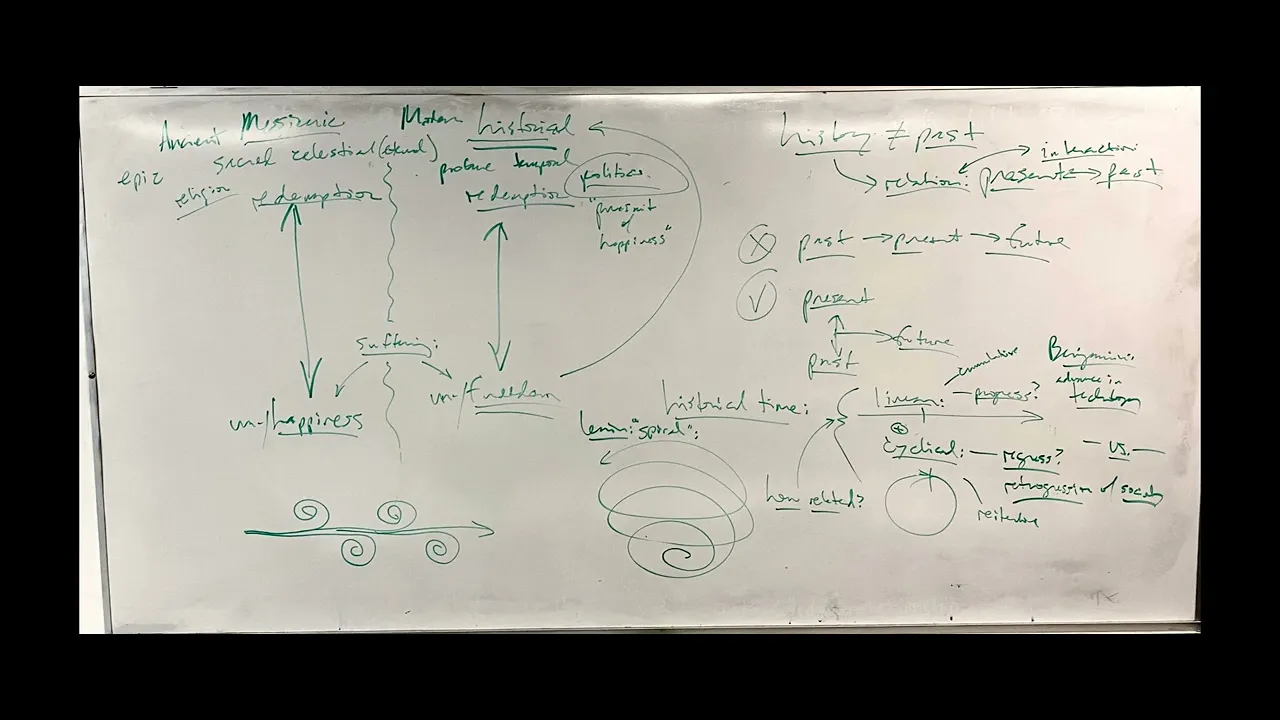 Ancient Messianic
sacred celestial (eternal)
epic
religion redemption
Modern historical
profane temporal
redemption
politics.
"pursuit
of
happiness"
suffering:
un-/happiness
un-/freedom
history ≠ past
relation: present → past
interaction
X past → present → future
√ present
future
past
historical time:
Lenin: "spiral":
how related?
linear: — progress?
cumulative
Benjamin:
advance in
technology
— vs. —
+
cyclical: — regress?
retrogression of society
reiterative